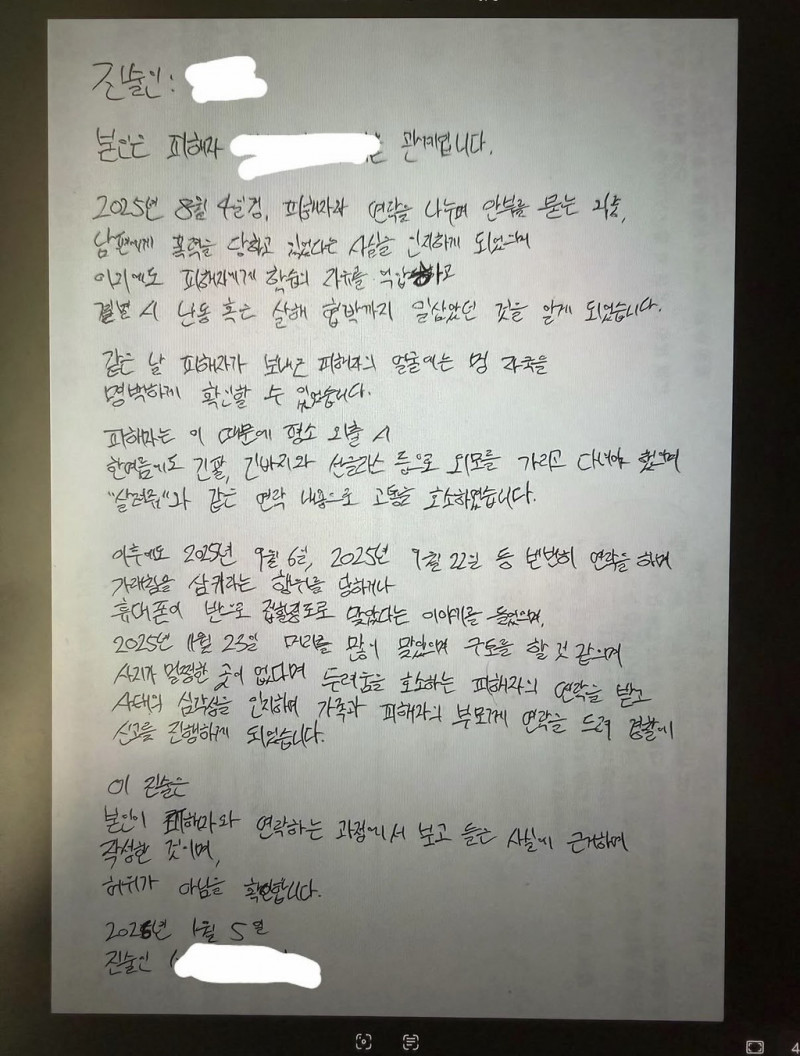 진술인:
본인은 피해자 관계입니다.
2025년 8월 4일경, 피해자와 연락을 나누며 안부를 묻는 와중,
남편에게 폭력을 당하고 있었다는 사실을 인지하게 되었으며
이외에도 피해자에게 학습의 자유를 억압하고
결별 시 난동 혹은 살해 협박까지 일삼았던 것을 알게 되었습니다.
같은 날 피해자가 보내온 피해자의 얼굴에는 멍 자국을
명백하게 확인할 수 있었습니다.
피해자는 이 때문에 평소 외출 시
한여름에도 긴팔, 긴바지와 선글라스 등으로 외모를 가리고 다녀야 했으며
"살려줘"와 같은 연락 내용으로 고통을 호소하였습니다.
이후에도 2025년 9월 6일, 2025년 9월 22일 등 빈번히 연락을 하며
가래침을 삼키라는 행위를 당하거나
휴대폰이 반으로 접힐 정도로 맞았다는 이야기를 들었으며,
2025년 11월 23일 머리를 많이 맞았으며 구토를 할 것 같으며
사지가 멀쩡한 곳이 없다며 두려움을 호소하는 피해자의 연락을 받고
사태의 심각성을 인지하며 가족과 피해자의 부모께 연락을 드려 경찰에
신고를 진행하게 되었습니다.
이 진술은
본인이 피해자와 연락하는 과정에서 보고 들은 사실에 근거하여
작성한 것이며,
허위가 아님을 확인합니다.
2026년 1월 5일
진술인